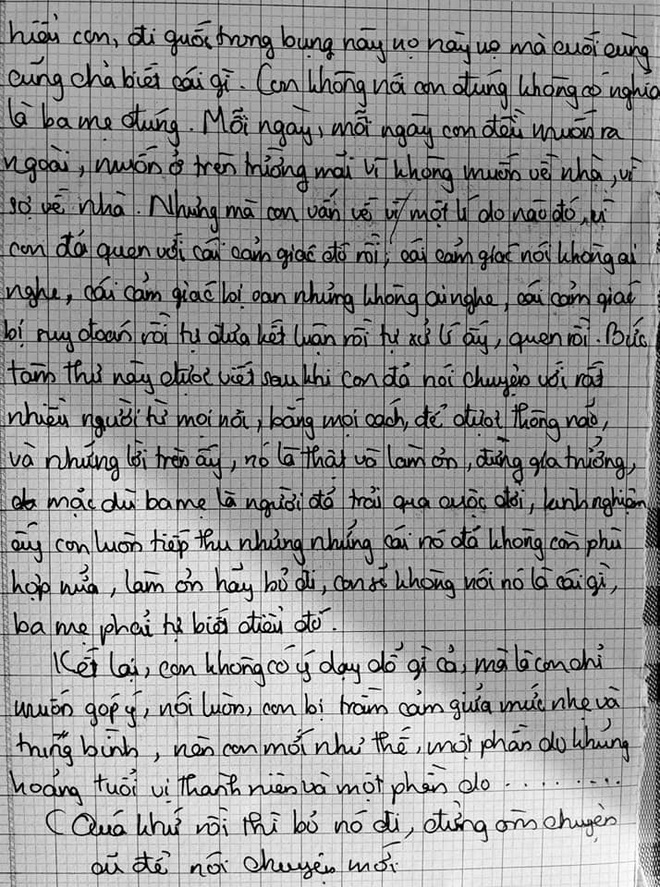 hiểu con, đi guốc trong bụng này nọ này nọ mà cuối cùng
cũng chả biết cái gì. Con không nói con đúng không có nghĩa
là ba mẹ đúng. Mỗi ngày, mỗi ngày con đều muốn ra
ngoài, muốn ở trên trường mãi vì không muốn về nhà, vì
sợ về nhà. Nhưng mà con vẫn về vì một lí do nào đó, vì
con đã quen với cái cảm giác đó rồi, cái cảm giác nói không ai
nghe, cái cảm giác bị oan nhưng không ai nghe, cái cảm giác
bị suy đoán rồi tự đưa kết luận rồi tự xử lí ấy, quen rồi. Bức
tâm thư này được viết sau khi con đã nói chuyện với rất
nhiều người từ mọi nơi, bằng mọi cách, để được thông não,
và những lời trên ấy, nó là thật vô làm ơn, đừng gia trưởng,
mặc dù ba mẹ là người đã trải qua cuộc đời, kinh nghiệm
ấy con luôn tiếp thu nhưng những cái nó đã không còn phù
hợp nữa, làm ơn hãy bỏ đi, con sẽ không nói nó là cái gì,
ba mẹ phải tự biết điều đó.
Kết lại, con không có ý dạy dỗ gì cả, mà là con chỉ
muốn góp ý, nói luôn, con bị trầm cảm giữa mức nhẹ và
trung bình, nên con mới như thế, một phần do khủng
hoảng tuổi vị thanh niên và một phần do ..........
(Quá khứ rồi thì bỏ nó đi, đừng ôm chuyện
cũ để nói chuyện mới.